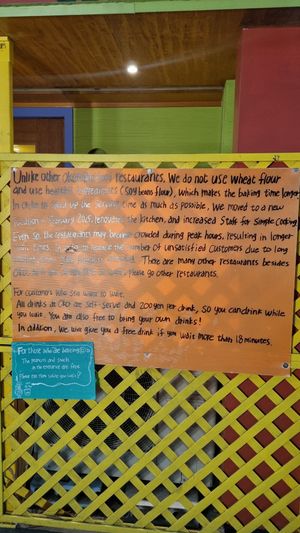 Unlike other Okonomiyaki restaurants, We do not use wheat flour
and use healthy ingredients (Soy beans flour), which makes the baking time longer.
In order to speed up the serving time as much as possible, We moved to a new
location in February 2015, renovated the kitchen, and increased Staff for Simple Cooking
Even so the restaurants may become crowded during peak hours, resulting in longer
wait times. to reduce the number of unsatisfied Customers due to long
There are many other restaurants besides
Please go other restaurants.
For customers who still want to wait.
All drinks at Oko are Self-Serve and 200yen per drink, so you can drink while
you wait. You are also free to bring your own drinks!
In addition, We will give you a free drink if you wait more than 18 minutes.
For those who are waiting
The manga and snacks
in the entrance are free.
Please use them while you wait!